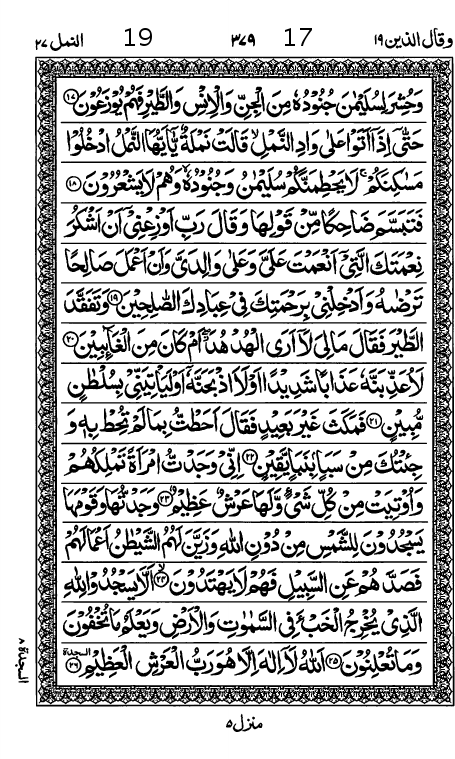 وقال الذین ۱۹ 17 ۳۷۹ 19 النمل ۲۷
وَحُشِرَ لِسُلَيْمٰنَ جُنُوْدُهٗ مِنَ الْجِنِّ وَالْاِنْسِ وَالطَّيْرِ فَهُمْ يُوْزَعُوْنَ ۝۱۷
حَتّٰۤى اِذَاۤ اَتَوْا عَلٰى وَادِ النَّمْلِ ۙ قَالَتْ نَمْلَةٌ يّٰۤاَيُّهَا النَّمْلُ ادْخُلُوْا
مَسٰكِنَكُمْ ۚ لَا يَحْطِمَنَّكُمْ سُلَيْمٰنُ وَجُنُوْدُهٗ ۙ وَهُمْ لَا يَشْعُرُوْنَ ۝۱۸
فَتَبَسَّمَ ضَاحِكًا مِّنْ قَوْلِهَا وَقَالَ رَبِّ اَوْزِعْنِيْۤ اَنْ اَشْكُرَ
نِعْمَتَكَ الَّتِيْۤ اَنْعَمْتَ عَلَيَّ وَعَلٰى وَالِدَيَّ وَاَنْ اَعْمَلَ صَالِحًا
تَرْضٰىهُ وَاَدْخِلْنِيْ بِرَحْمَتِكَ فِيْ عِبَادِكَ الصّٰلِحِيْنَ ۝۱۹ وَتَفَقَّدَ
الطَّيْرَ فَقَالَ مَا لِيَ لَاۤ اَرَى الْهُدْهُدَ ۖ اَمْ كَانَ مِنَ الْغَآئِبِيْنَ ۝۲۰
لَاُعَذِّبَنَّهٗ عَذَابًا شَدِيْدًا اَوْ لَاۡاَذْبَحَنَّهٗۤ اَوْ لَيَاْتِيَنِّيْ بِسُلْطٰنٍ
مُّبِيْنٍ ۝۲۱ فَمَكَثَ غَيْرَ بَعِيْدٍ فَقَالَ اَحَطْتُّ بِمَا لَمْ تُحِطْ بِهٖ وَ
جِئْتُكَ مِنْ سَبَاٍۭ بِنَبَاٍ يَّقِيْنٍ ۝۲۲ اِنِّيْ وَجَدْتُّ امْرَاَةً تَمْلِكُهُمْ
وَاُوْتِيَتْ مِنْ كُلِّ شَيْءٍ وَّلَهَا عَرْشٌ عَظِيْمٌ ۝۲۳ وَجَدْتُّهَا وَقَوْمَهَا
يَسْجُدُوْنَ لِلشَّمْسِ مِنْ دُوْنِ اللّٰهِ وَزَيَّنَ لَهُمُ الشَّيْطٰنُ اَعْمَالَهُمْ
فَصَدَّهُمْ عَنِ السَّبِيْلِ فَهُمْ لَا يَهْتَدُوْنَ ۝۲۴ ۙ اَلَّا يَسْجُدُوْا لِلّٰهِ
الَّذِيْ يُخْرِجُ الْخَبْءَ فِي السَّمٰوٰتِ وَالْاَرْضِ وَيَعْلَمُ مَا تُخْفُوْنَ
وَمَا تُعْلِنُوْنَ ۝۲۵ اَللّٰهُ لَاۤ اِلٰهَ اِلَّا هُوَ رَبُّ الْعَرْشِ الْعَظِيْمِ ۝۲۶ السجدة
السجدة ۸
منزل ۵